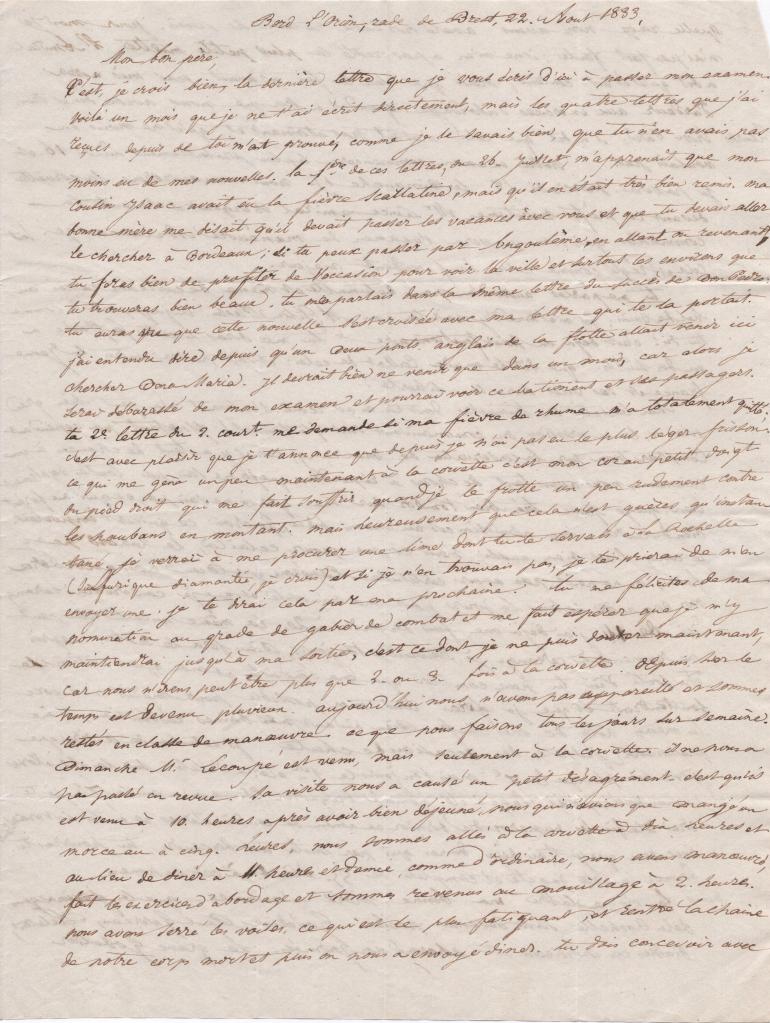 Bord L'Orion, rade de Brest, 22. Aout 1833,
Mon bon père,
C'est, je crois bien, la dernière lettre que je vous écris d'ici à passer mon examen.
voilà un mois que je ne t'ai écrit directement, mais les quatre lettres que j'ai
reçues depuis de toi m'ont prouvé, comme je le savais bien, que tu n'en avais pas
moins eu de mes nouvelles. la 1ère de ces lettres, du 26 Juillet, m'apprenait que mon
cousin Isaac avait eu la fièvre scarlatine, mais qu'il en était très bien remis. ma
bonne mère me disait qu'il devait passer les vacances avec vous et que tu devais aller
le chercher à Bordeaux; si tu peux passer par Angoulême, en allant ou revenant,
tu feras bien de profiter de l'occasion pour voir la ville et surtout les environs que
tu trouveras bien beaux. tu me parlais dans la même lettre du succès de Don Pedro.
tu auras vu que cette nouvelle s'est croisée avec ma lettre qui te la portait.
j'ai entendu dire depuis qu'un deux ponts anglais de la flotte allait venir ici
chercher Dona Maria. Il devrait bien ne venir que dans un mois, car alors je
serai débarassé de mon examen et pourrai voir ce bâtiment et ses passagers.
ta 2e. lettre du 2. court. me demande si ma fièvre de rhume m'a totalement quitté.
c'est avec plaisir que je t'annonce que depuis je n'ai pas eu le plus léger frisson.
ce qui me gêne un peu maintenant à la corvette c'est mon cor au petit doigt
du pied droit qui me fait souffrir quand je le frotte un peu rudement contre
les haubans en montant. mais heureusement que cela n'est guères qu'instan
tané. je verrai à me procurer une lime dont tu te servais à la Rochelle
( diamantée, je crois) et si je n'en trouvais pas, je te prierai de m'en
envoyer une. je te dirai cela par ma prochaine. tu me félicites de ma
nomination au grade de gabier de combat et me fait espérer que je m'y
maintiendrai jusqu'à ma sortie, c'est ce dont je ne puis douter maintenant,
car nous n'irons peut être plus que 2. ou 3. fois à la corvette. depuis hier le
temps est devenu pluvieux. aujourd'hui nous n'avons pas appareillé et sommes
restés en classe de manœuvre ce que nous faisons tous les jours sur semaine.
Dimanche Mr. Lecoupé est venu, mais seulement à la corvette. il ne nous a
pas passé en revue. sa visite nous a causé un petit désagrément. c'est qu'il
est venu à 10. heures après avoir bien déjeuné, nous qui n'avions que mangé un
morceau à cinq heures, nous sommes allés à la corvette à dix heures et
au lieu de diner à 11. heures et demie, comme d'ordinaire, nous avons manœuvré,
fait les exercices d'abordage et sommes revenus au mouillage à 2. heures.
nous avons serré les voiles, ce qui est le plus fatiguant, et rentré la chaine
de notre corps mort et puis on nous a envoyé diner. tu dois concevoir avec